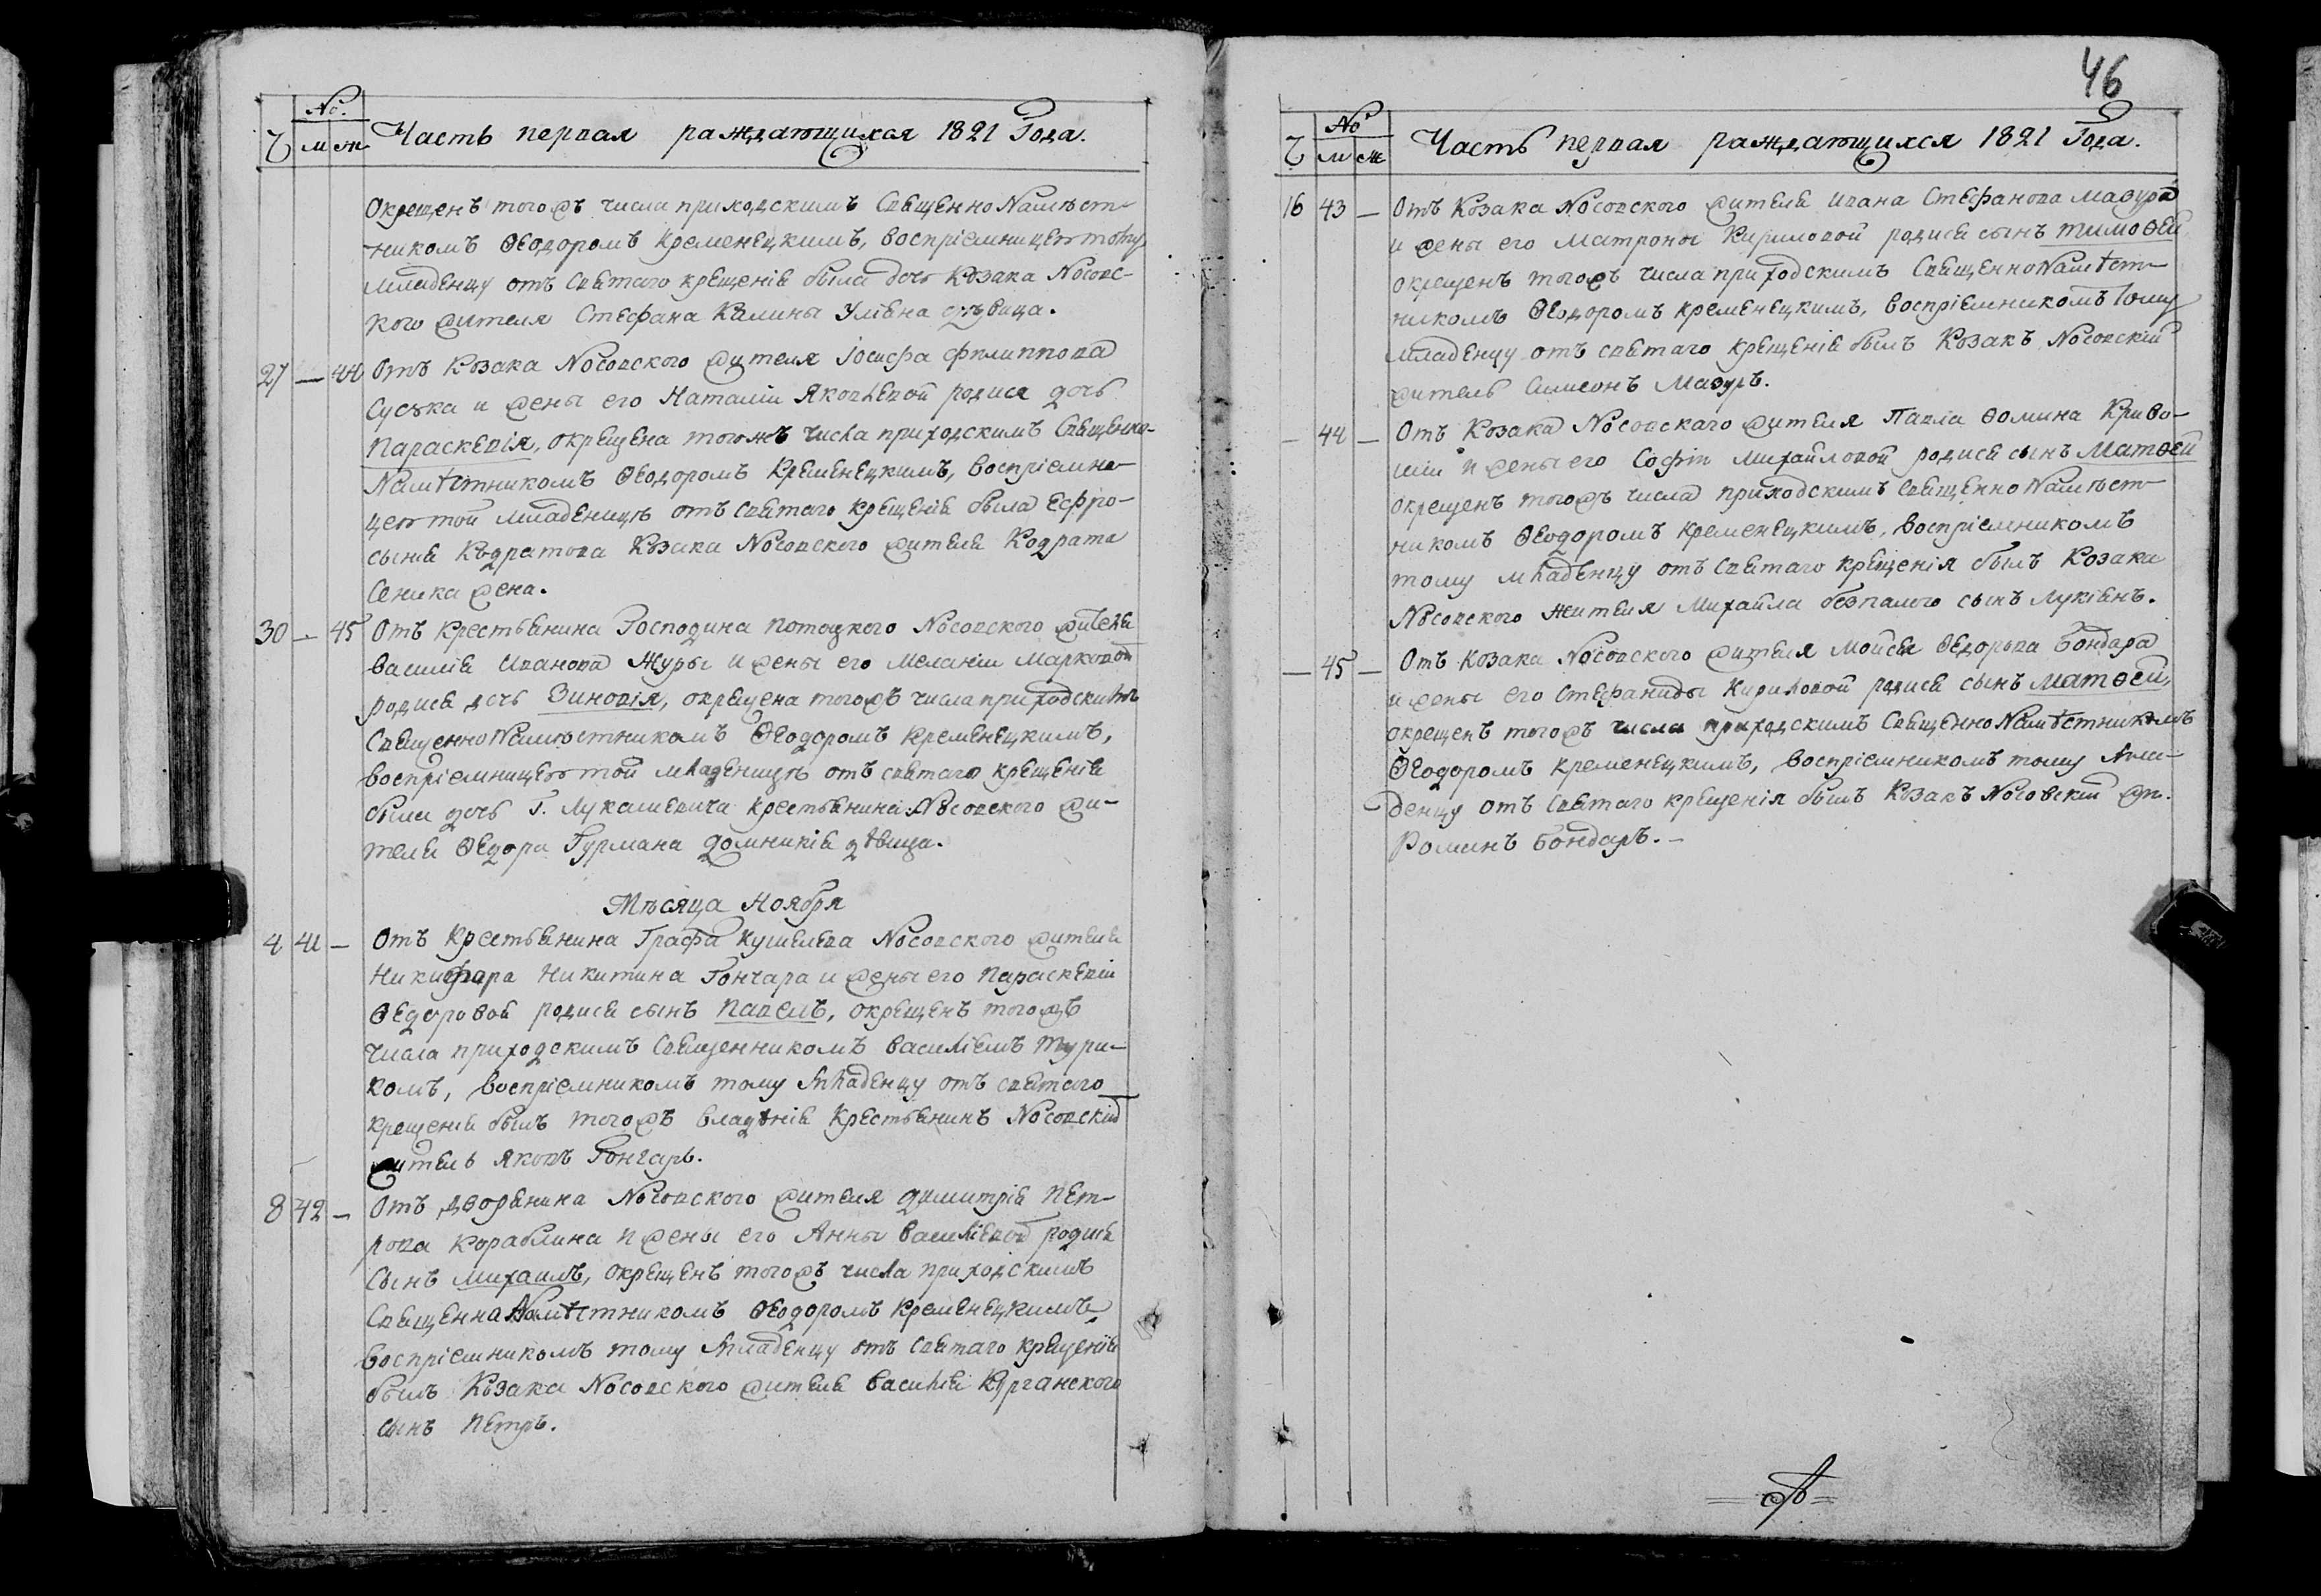 №.
Ч м ж Часть первая раждающихся 1821 Года.
Окрещенъ тогожъ числа приходскимъ СвященноНамѣст-
никомъ Ѳеодоромъ Кременецкимъ, воспріемницею тому
младенцу отъ Святаго крещенія была дочь Козака Носовс-
кого жителя Стефана Калины Уліяна дѣвица.
27 — 44 Отъ Козака Носовского жителя Іосифа Филиппова
Суська и жены его Наталіи Яковлевой родися дочь
Параскевія, окрещена тогожъ числа приходскимъ Священно-
Намѣстникомъ Ѳеодоромъ Кременецкимъ, воспріемни-
цею той младеницѣ отъ Святаго крещенія была Есфро-
сынія Кодратова Козака Носовского жителя Кодрата
Сеника жена.
30 — 45 Отъ Крестьянина Господина Потоцкого Носовского жителя
Василія Иванова Журы и жены его Меланіи Марковой
родися дочь Зиновія, окрещена тогожъ числа приходскимъ
СвященноНамѣстникомъ Ѳеодоромъ Кременецкимъ,
воспріемницею той младеницѣ отъ святаго крещенія
была дочь Г. Лукашевича крестьянина Носовского жи-
теля Ѳедора Гурмана Домникія дѣвица.
Мѣсяца Ноября
4 41 — Отъ Крестьянина Графа Кушелева Носовского жителя
Никифора Никитина Гончара и жены его Параскевіи
Ѳедоровой родися сынъ Павелъ, окрещенъ тогожъ
числа приходскимъ Священникомъ Василіемъ Тури-
комъ, воспріемникомъ тому младенцу отъ святаго
крещенія былъ тогожъ владѣнія Крестьянинъ Носовскій
житель Яковъ Гончаръ.
8 42 — Отъ дворянина Носовского жителя Димитрія Пет-
рова Кораблина и жены его Анны Василіевой родися
Сынъ Михаилъ, окрещенъ тогожъ числа приходскимъ
СвященноНамѣстникомъ Ѳеодоромъ Кременецкимъ
воспріемникомъ тому младенцу отъ Святаго крещенія
былъ Козака Носовского жителя Василія Курганского
сынъ Петръ.
46
№
Ч м ж Часть первая раждающихся 1821 Года.
16 43 — Отъ Козака Носовского жителя Ивана Стефанова Мазура
и жены его Матроны Кириловой родися сынъ Тимоѳей
окрещенъ тогожъ числа приходскимъ СвященноНамѣст-
никомъ Ѳеодоромъ Кременецкимъ, воспріемникомъ тому
младенцу отъ святаго крещенія былъ Козакъ Носовскій
житель Симеонъ Мазуръ.
— 44 — Отъ Козака Носовскаго жителя Павла Ѳомина Криво-
шіи и жены его Софіи Михайловой родися сынъ Матѳей
окрещенъ тогожъ числа приходскимъ СвященноНамѣст-
никомъ Ѳеодоромъ Кременецкимъ, воспріемникомъ
тому младенцу отъ Святаго крещенія былъ Козака
Носовского жителя Михайла безпалого сынъ Лукіянъ.
— 45 — Отъ Козака Носовского жителя Мойсея Ѳедорова Бондара
и жены его Стефаниды Кириловой родися сынъ Матѳей,
окрещенъ тогожъ числа приходскимъ СвященноНамѣстникомъ
Ѳеодоромъ Кременецкимъ, воспріемникомъ тому мла-
денцу отъ Святаго крещенія былъ Козакъ Носовскій жи.
Романъ Бондаръ. —